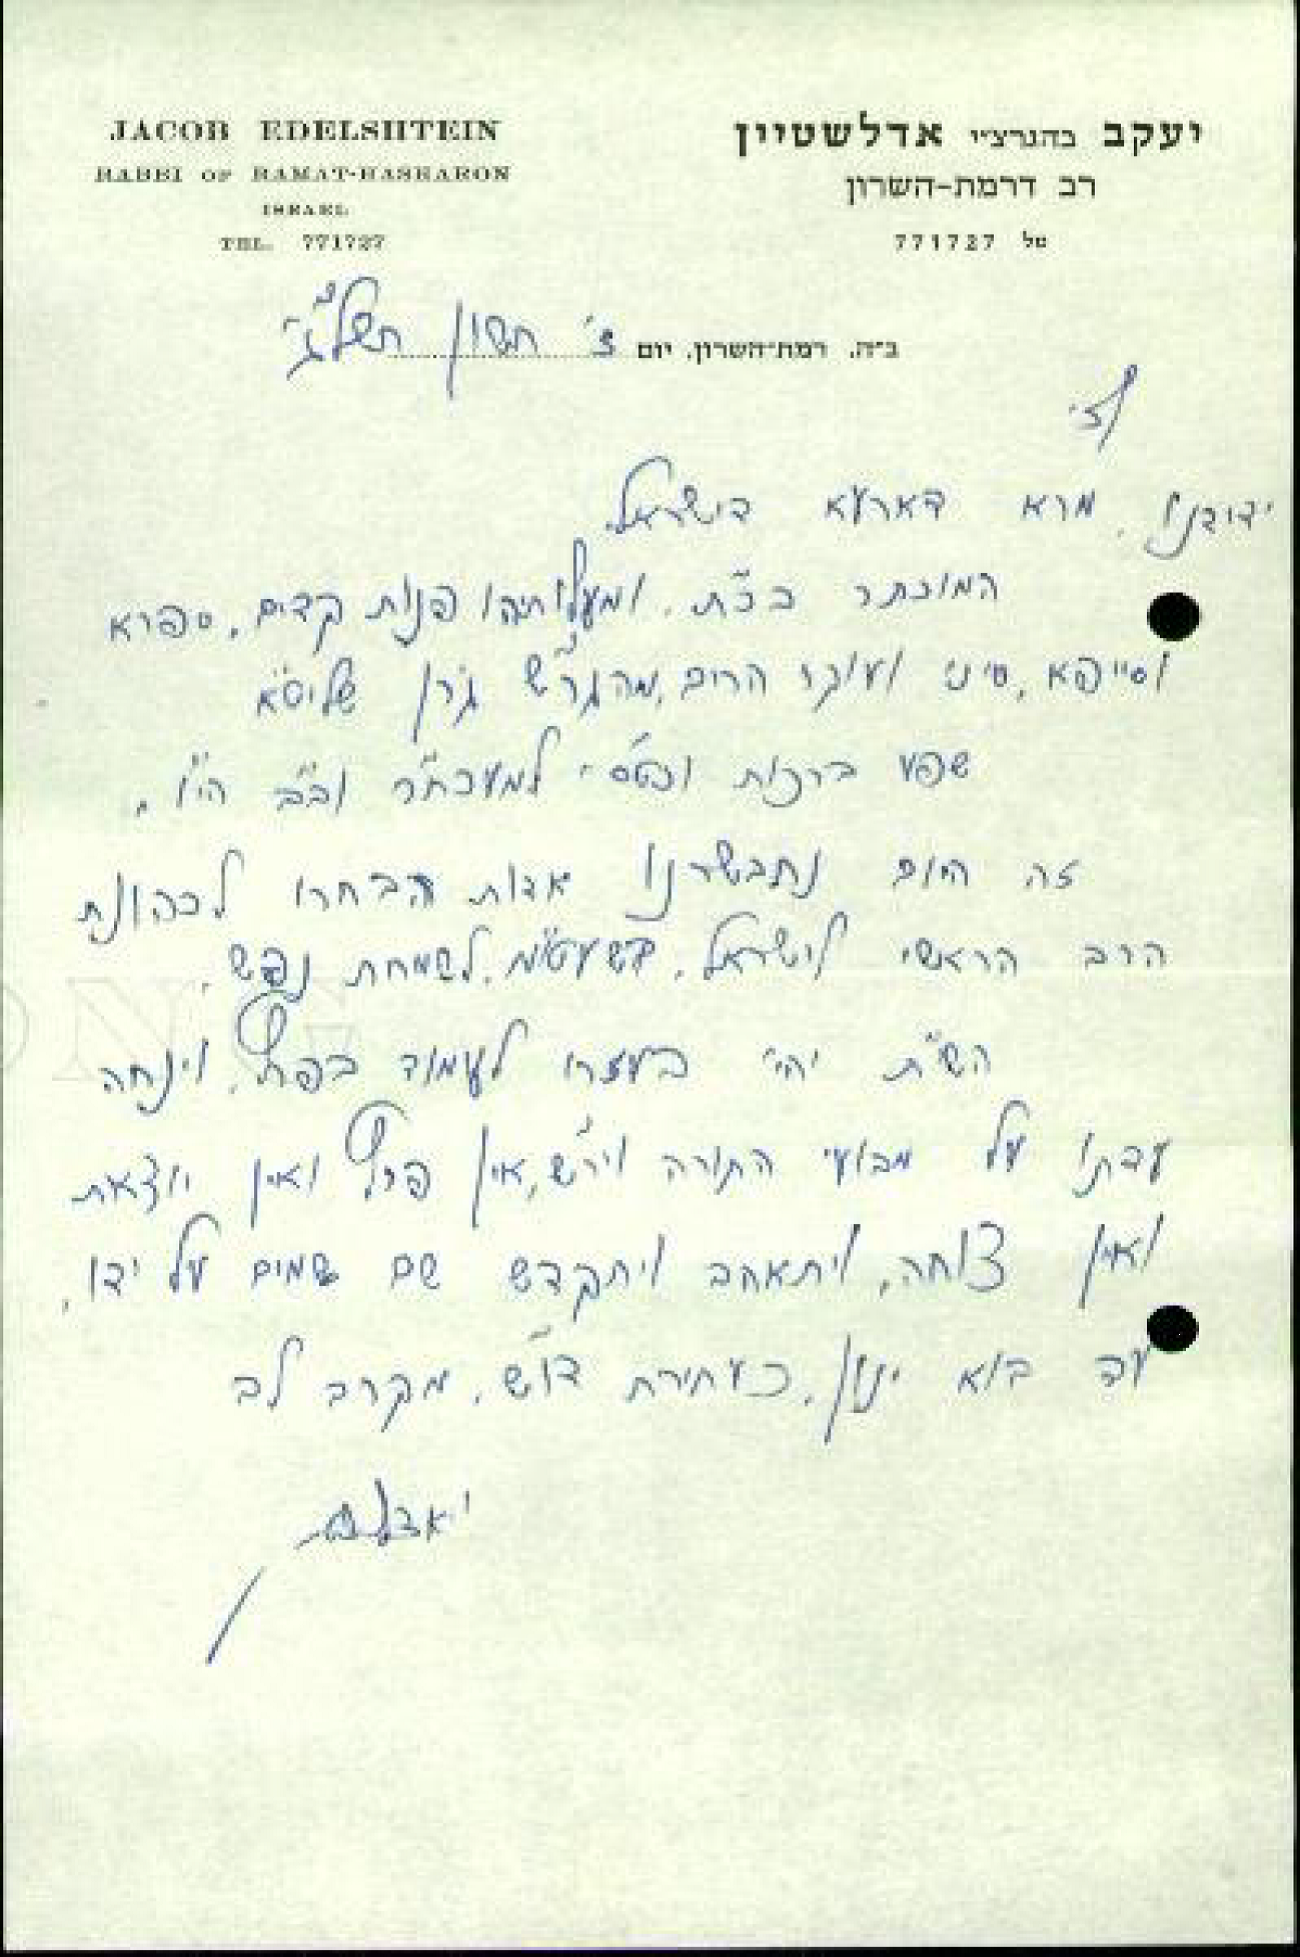 JACOB EDELSHTEIN
RABBI OF RAMAT-HASHARON
ISRAEL
TEL. 771727
יעקב בהגרצ״י אדלשטיין
רב דרמת-השרון
טל 771727
ב״ה. רמת-השרון, יום ז׳ חשון תשל״ג
ידידנו, מרא דארעא דישראל
המוכתר בכ״ת, ומעלותיהו פנות קדים, ספרא
וסייפא, סיני ועוקר הרים, מהגר״ש גרן שליט״א
שפע ברכות וכט״ס למעכת״ר וב״ב הי״ו.
זה היום נתבשרנו אדות הבחרו לכהונת
הרב הראשי לישראל, בשעטו״מ, לשמחת נפש.
השי״ת יהי׳ בעזרו לעמוד בפרץ, וינחה
עדתו על מבועי התורה ויר״ש, אין פרץ ואין יוצאת
ואין צוחה, ויתאהב ויתקדש שם שמים על ידו,
עד בוא ינון, כעתירת דו״ש, מקרב לב